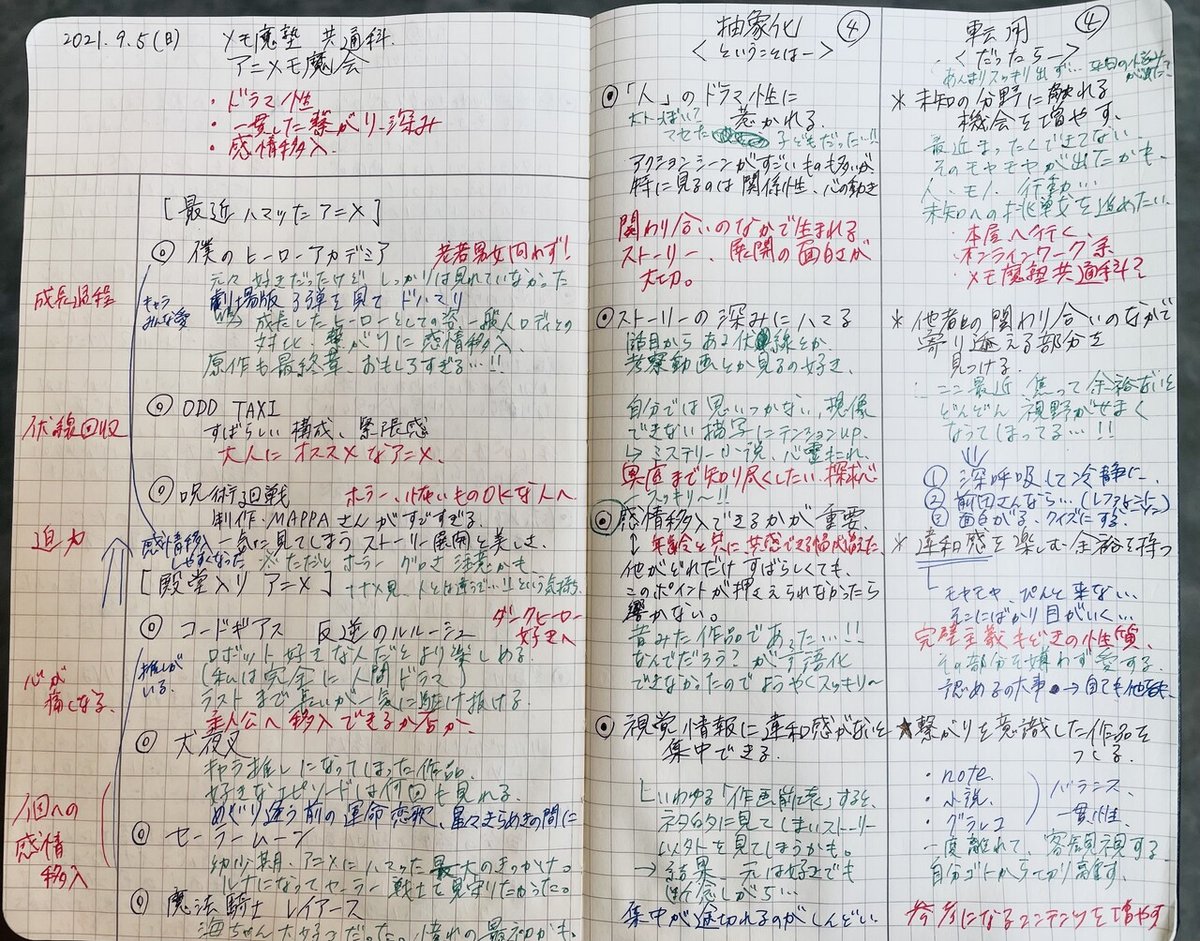 2021.9.5(日) メモ魔塾 共通科
アニメモ魔会
・ドラマ性
・一貫した繋がり、深み
・感情移入
[最近ハマったアニメ]
◎ 僕のヒーローアカデミア 老若男女問わず!
元々好きだったけど、しっかりは見れていなかった
成長過程
キャラみんな愛
劇場版3弾を見てドハマリ
成長したヒーローとしての姿、一般人ロディとの
対比、繋がりに感情移入
原作も最終章、おもしろすぎる…!!
◎ ODD TAXI
伏線回収
すばらしい構成、緊張感
大人にオススメなアニメ、
◎ 呪術廻戦 ホラー、怖いものOKな人へ
制作・MAPPAさんがすごすぎる、
迫力
感情移入しやすくなった
一気に見てしまうストーリー展開と美しさ、
※ただしホラー グロさ 注意かも、
[殿堂入りアニメ]
ナナメ見、人とは違うで…!!という気持ち
◎ コードギアス 反逆のルルーシュ ダークヒーロー好きへ
推しがいる、
ロボット好きな人だとより楽しめる
(私は完全に人間ドラマ)
心が痛くなる、
ラストまで長いが一気に駆け抜ける、
主人公へ移入できるか否か、
◎ 犬夜叉
キャラ推しになってしまった作品
好きなエピソードは何回も見れる、
めぐり逢う前の運命恋歌、星々きらめきの間に
1個への感情移入
◎ セーラームーン
幼少期、アニメにハマった最大のきっかけ。
ルナになってセーラー戦士を見守りたかった。
◎ 魔法騎士レイアース
海ちゃん大好きだった、憧れの最初かも、
抽象化 ④
<ということは―>
◎「人」のドラマ性に
惹かれる、
子どもだった…!!
アクションシーンがすごいものも多いが
特に見るのは関係性、心の動き
関わり合いのなかで生まれる
ストーリー、展開の面白さが
大切。
◎ストーリーの深みにハマる
1話目からある伏線とか
考察動画とか見るの好き、
自分では思いつかない、想像
できない描写にテンションup、
↳ミステリー小説、心霊もこれ、
奥底まで知り尽くしたい、探求心
スッキリ〜!!
◎感情移入できるかが重要、
↕年齢と共に共感できる幅も増えた、
他がどれだけすばらしくても、
このポイントが押さえられなかったら
響かない。
昔みた作品であった…!!
なんでだろう?がず言語化
できなかったのでようやくスッキリ〜
◎ 視覚情報に違和感がないと
集中できる、
いわゆる「作画崩壊」すると、
ネタ的に見てしまいストーリー
以外を見てしまうかも。
→結果 元は好きでも
断念しがち…
集中が途切れるのがしんどい
転用 ④
<だったら―>
あんまりスッキリ出ず…
* 未知の分野に触れる
機会を増やす、
最近まったくできてない
そのモヤモヤが出たかも、
人、モノ、行動…
未知への挑戦を進めたい、
・本屋へ行く、
・オンラインワーク系
・メモ魔塾共通科?
* 他者との関わり合いのなかで
寄り添える部分を
見つける、
ここ最近 焦って余裕ないと
どんどん視野がせまく
なってしまってる…!!
① 深呼吸して冷静に、
② 前田さんなら…
③ 面白がる、クイズにする、
* 違和感を楽しむ余裕を持つ
モヤモヤ、ぴんと来ない…
そこにばかり目がいく…
完璧主義もどきの性質、
その部分を嫌わず愛する、
認めるの大事→自己も他者も、
★繋がりを意識した作品を
つくる、
・note、
・小説、
・グラレコ
バランス
一貫性
一度離れて、客観視する
自分ゴトから切り離す、
参考になるコンテンツを増やす